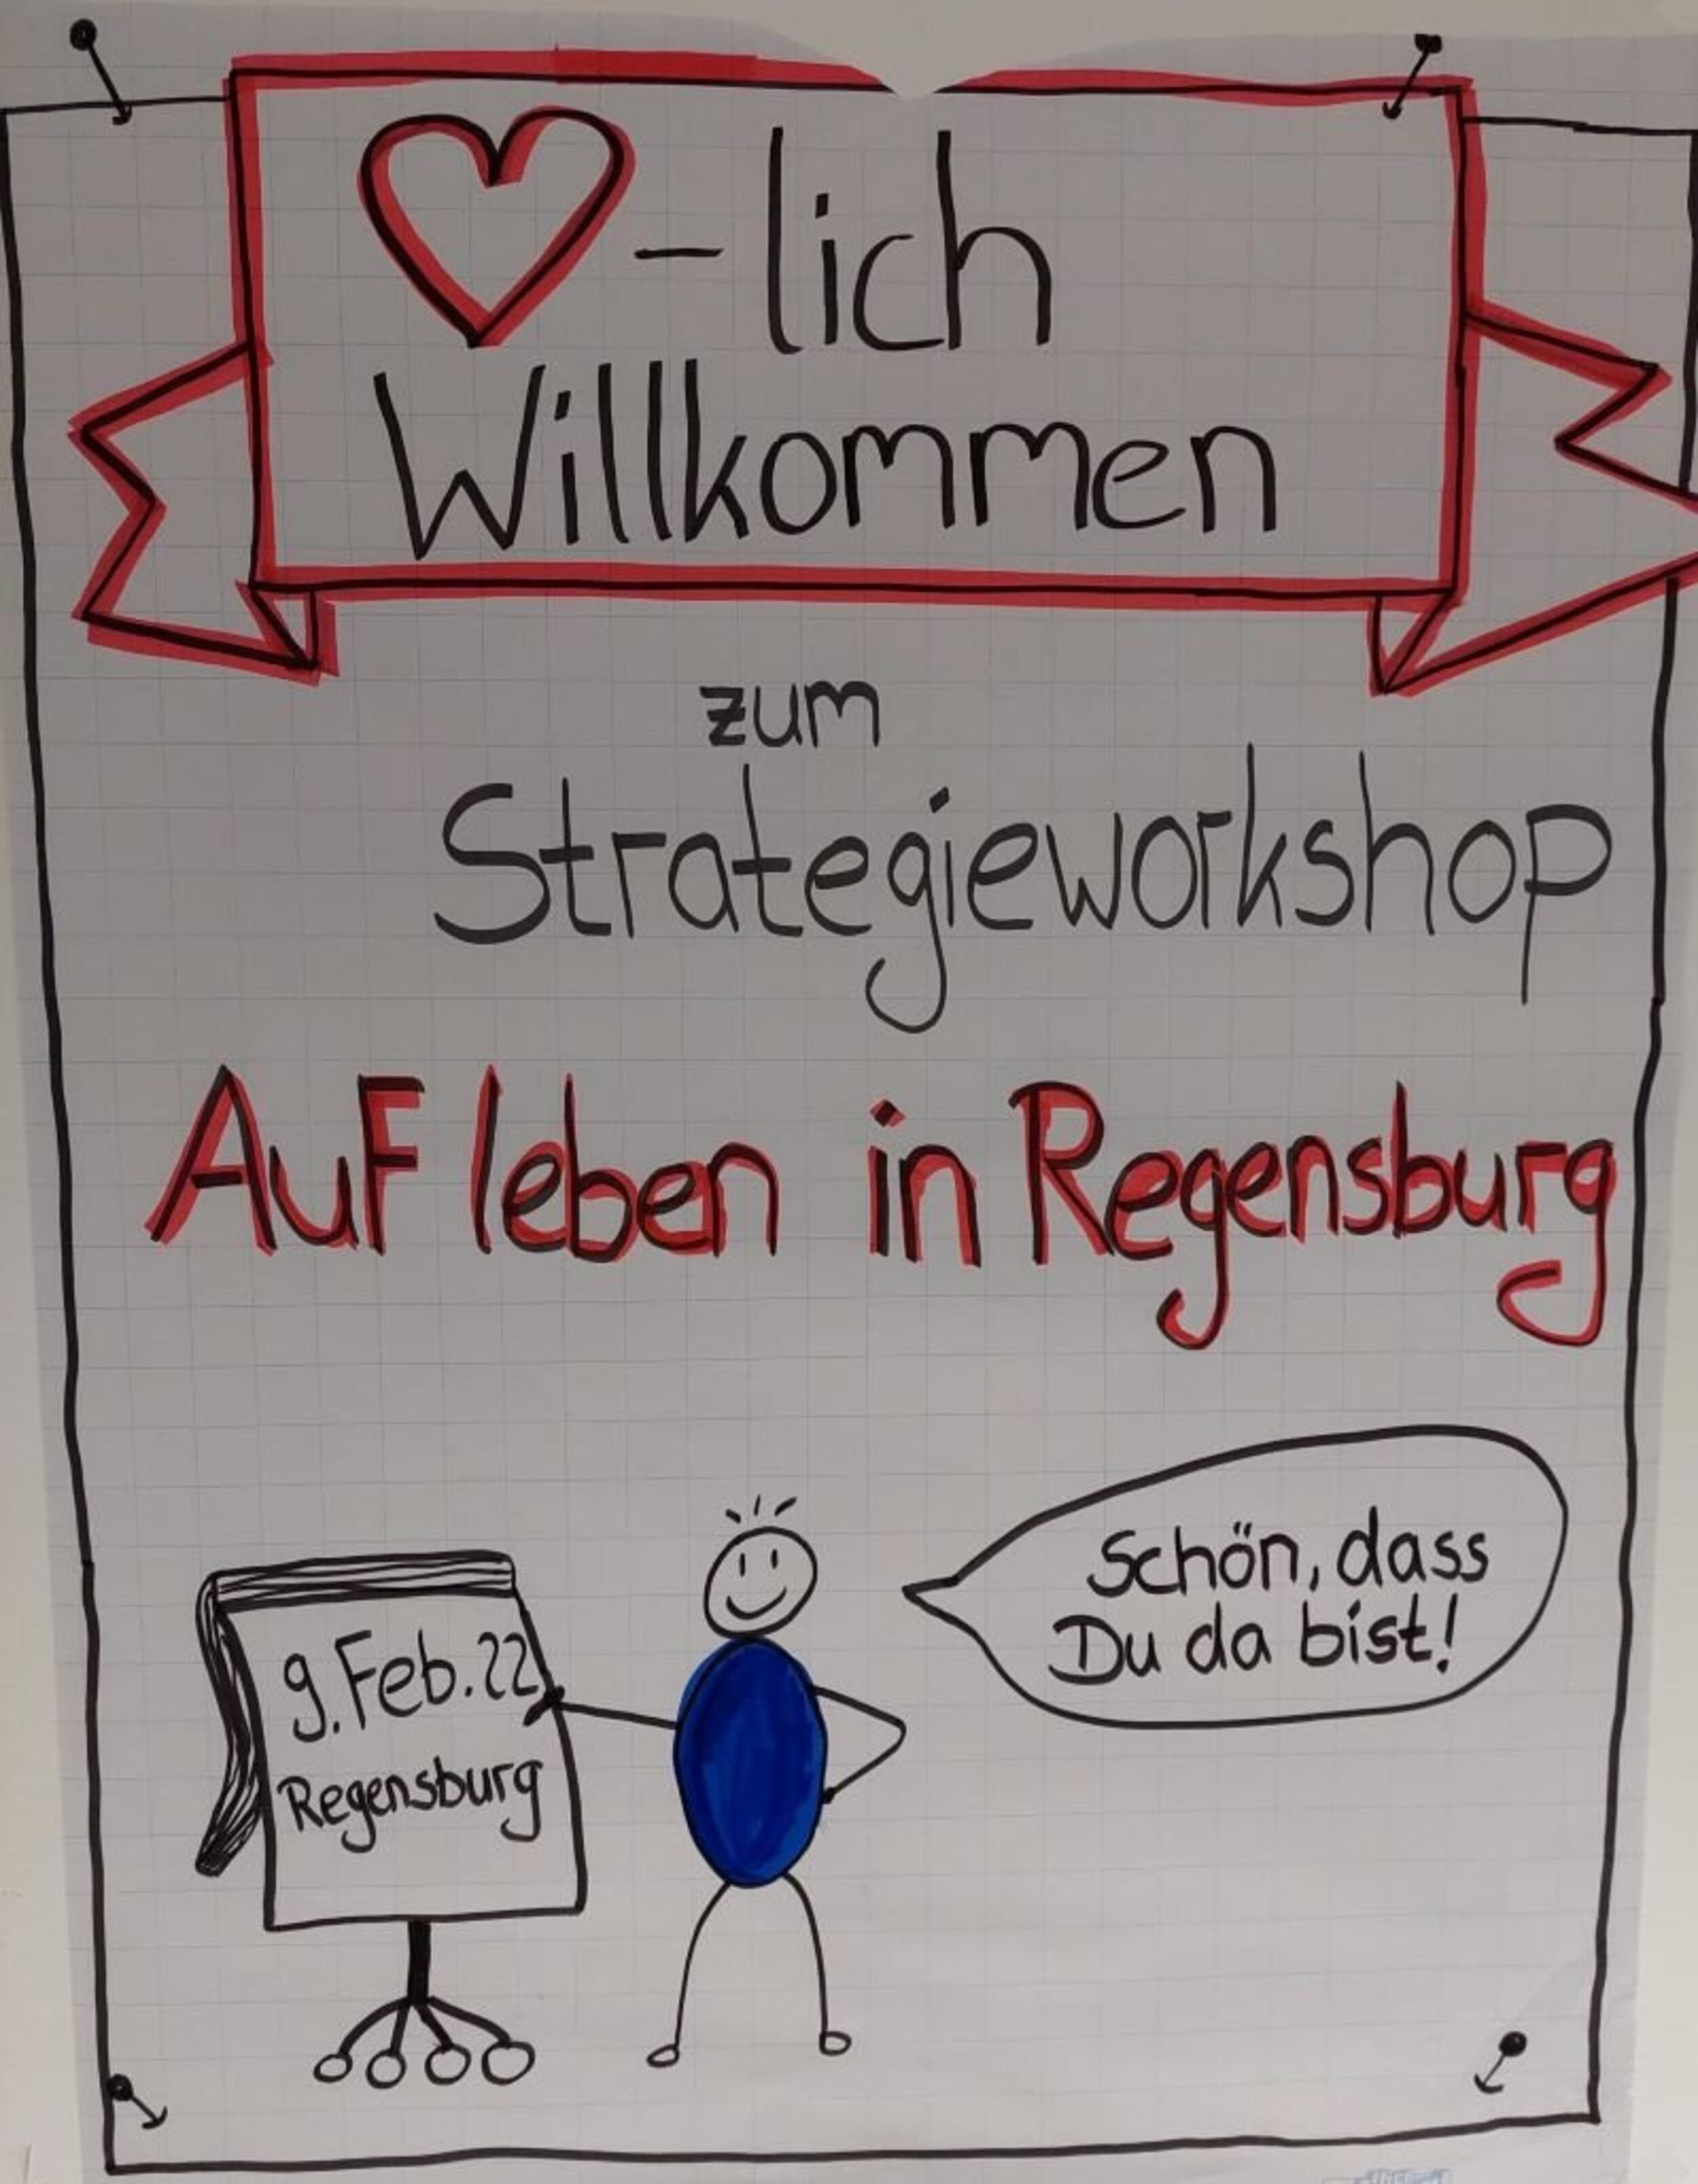 ♡-lich
Willkommen
zum
Strategieworkshop
AuFleben in Regensburg
Schön, dass
Du da bist!
9. Feb. 22
Regensburg